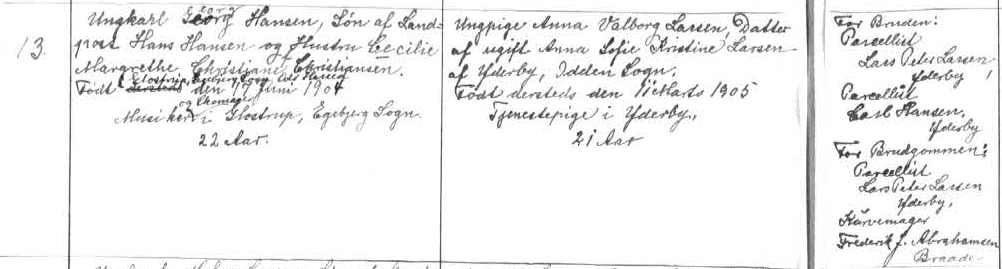 13.
Ungkarl Georg Hansen, Søn af Land-
post Hans Hansen og Hustru Cecilie
Margrethe Christiane Christiansen.
Født dersteds den 17 Juni 1904
og Skomager
Musiker i Glostrup, Egebjerg Sogn.
22 Aar.
Ungpige Anna Valborg Larsen, Datter
af ugift Anna Sofie Kristine Larsen
af Yderby, Odden Sogn.
Født dersteds den Marts 1905
Tjenestepige i Yderby,
21 Aar
For Bruden:
Parcellist
Lars Peter Larsen,
Yderby
Parcellist
Carl Hansen,
Yderby
For Brudgommen:
Parcellist
Lars Peter Larsen
Yderby,
Kurvemager
Frederik J. Abrahamsen
Braade